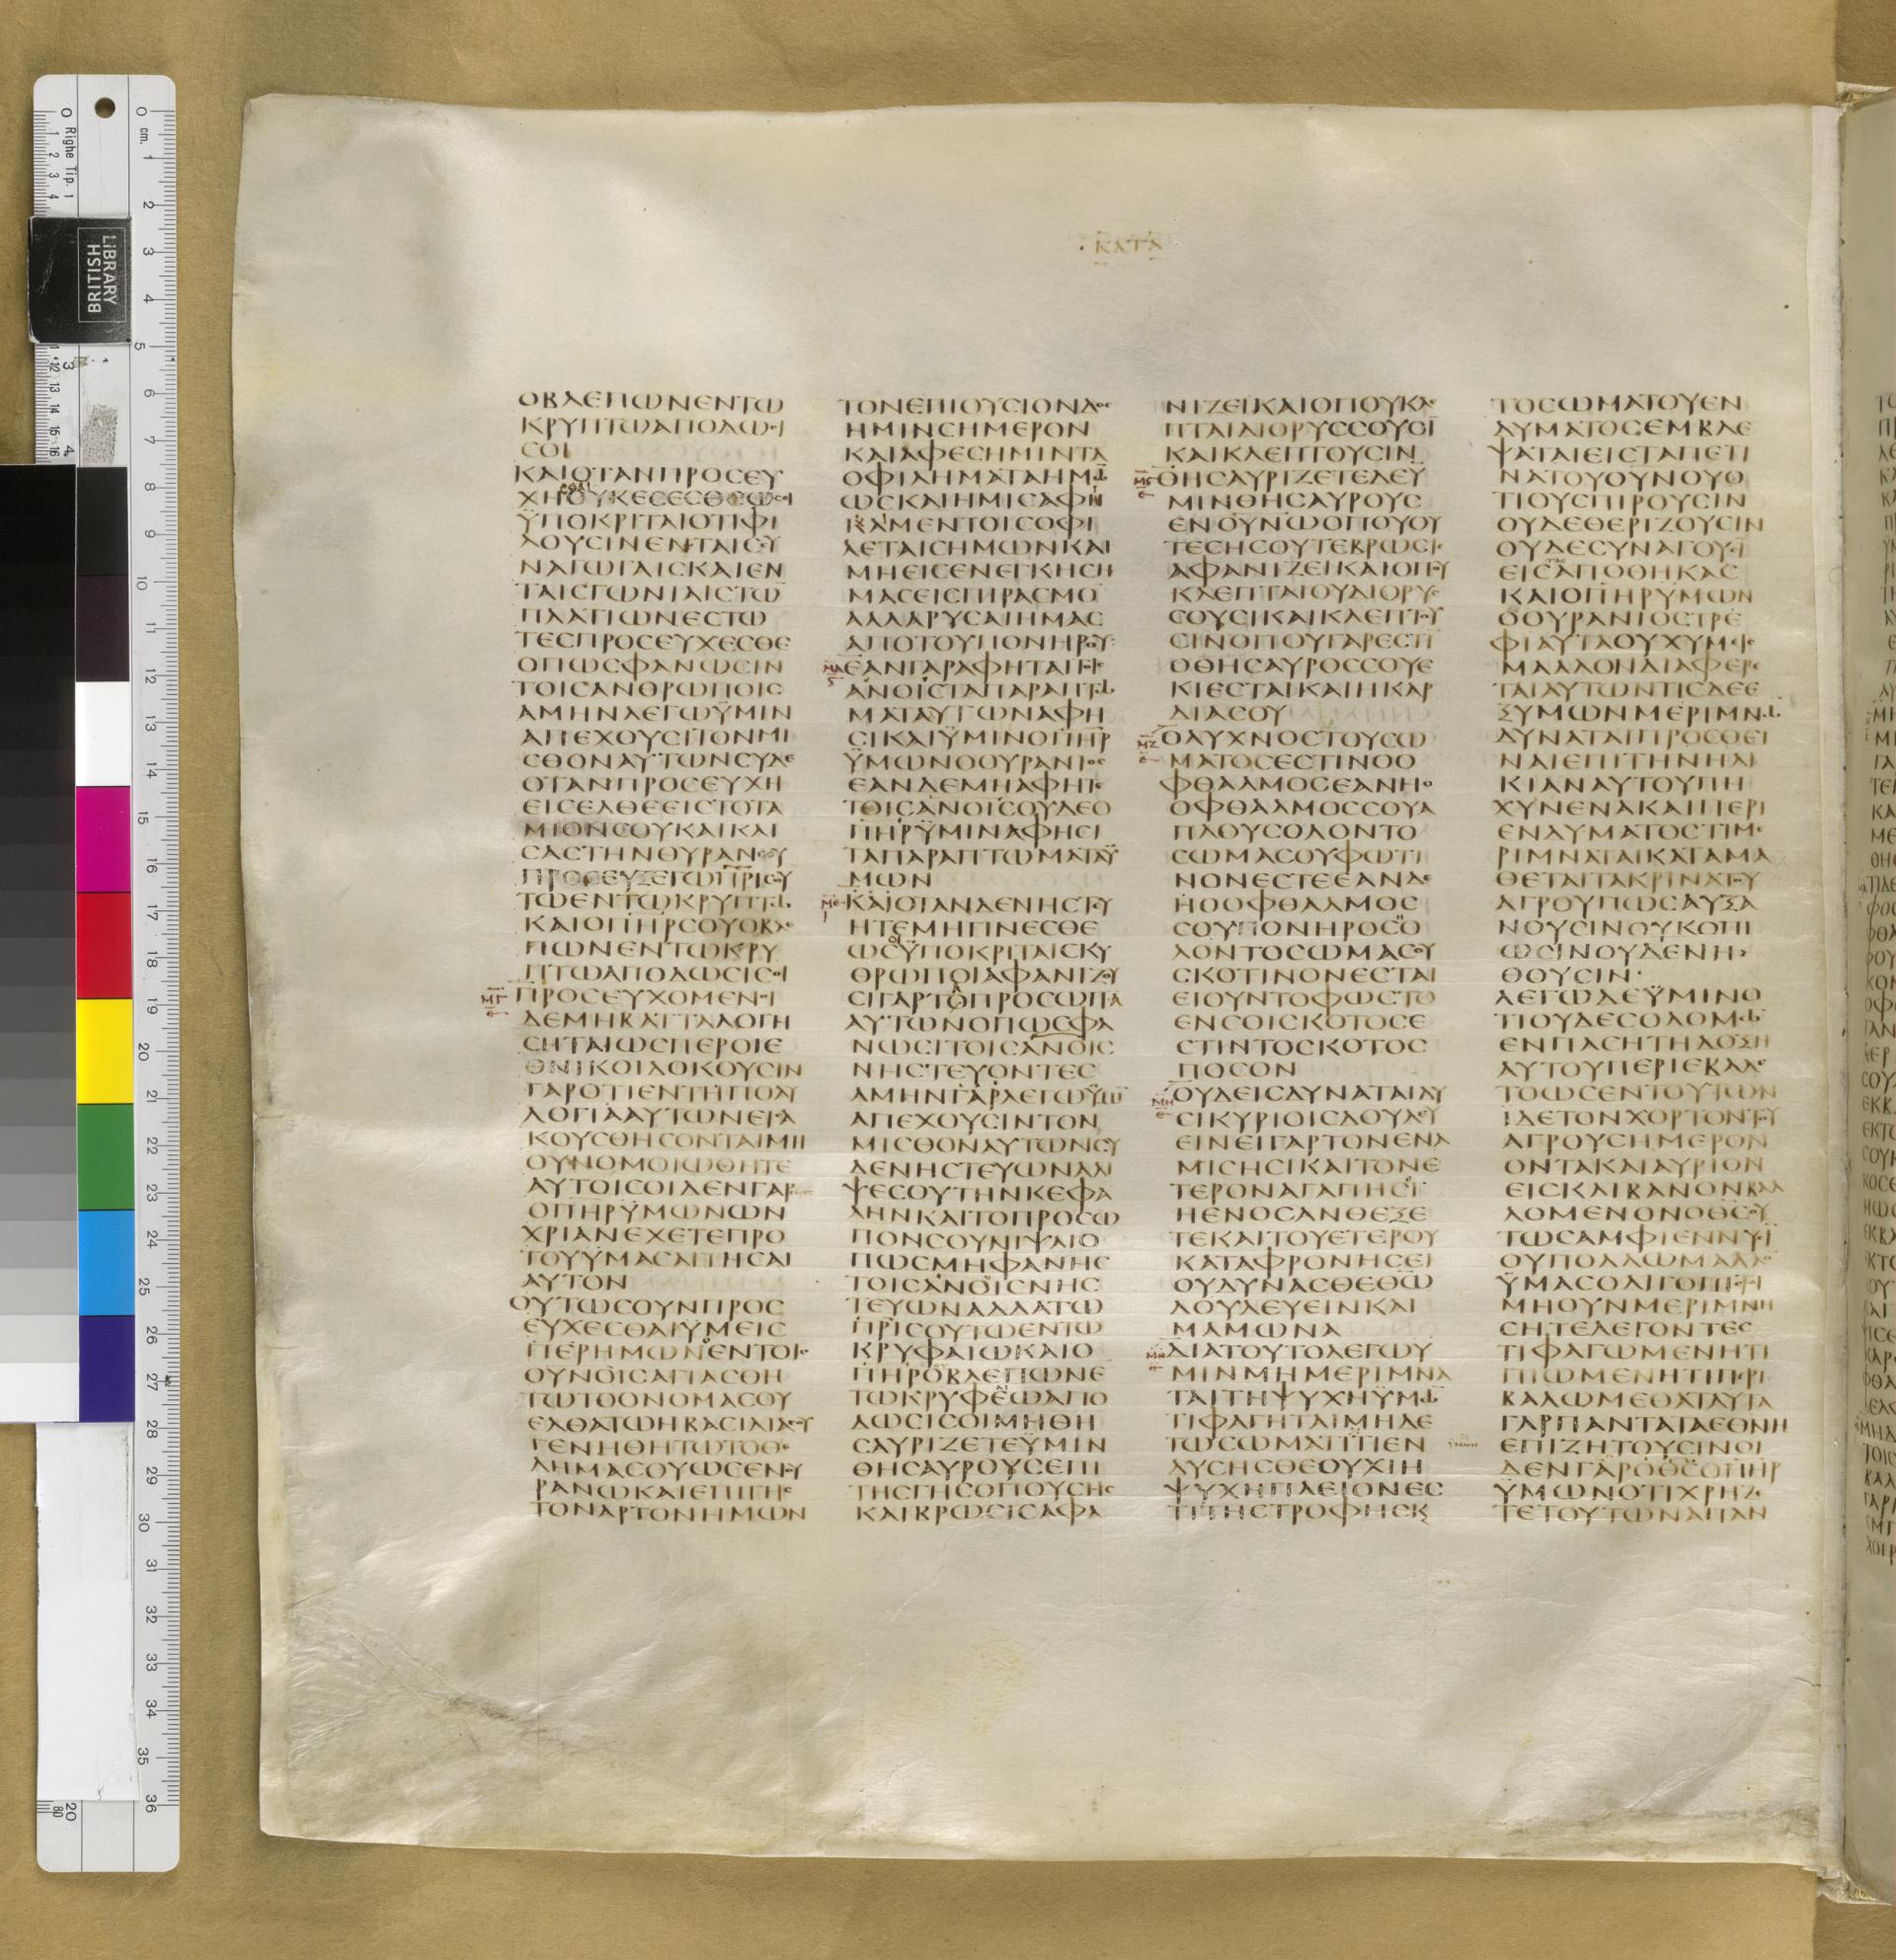 ΚΑΤΑ
ΟΒΛΕΠΩΝΕΝΤΩ
ΚΡΥΠΤΩΑΠΟΔΩΙ
ΣΟΙ
ΚΑΙΟΤΑΝΠΡΟΣΕΥ
ΫΠΟΚΡΙΤΑΙΟΤΙΦΙ
ΛΟΥΣΙΝΕΝΤΑΙΣΥ
ΝΑΓΩΓΑΙΣΚΑΙΕΝ
ΤΑΙΣΓΩΝΙΑΙΣΤΩ
ΠΛΑΤΙΩΝΕΣΤΩ
ΤΕΣΠΡΟΣΕΥΧΕΣΘΕ
ΟΠΩΣΦΑΝΩΣΙΝ
ΤΟΙΣΑΝΘΡΩΠΟΙΣ
ΑΜΗΝΛΕΓΩΫΜΙΝ
ΑΠΕΧΟΥΣΙΤΟΝΜΙ
ΣΘΟΝΑΥΤΩΝΣΥΔΕ
ΟΤΑΝΠΡΟΣΕΥΧΗ
ΕΙΣΕΛΘΕΕΙΣΤΟΤΑ
ΜΙΟΝΣΟΥΚΑΙΚΛΙ
ΣΑΣΤΗΝΘΥΡΑΝΣΟΥ
ΠΡΟΣΕΥΞΕΤΩΠΡΙΣΟΥ
ΤΩΕΝΤΩΚΡΥΠΤΩ
ΚΑΙΟΠΗΡΣΟΥΟΒΛΕ
ΠΩΝΕΝΤΩΚΡΥ
ΠΤΩΑΠΟΔΩΣΙΣΟΙ
ΜΓ
ΠΡΟΣΕΥΧΟΜΕΝΟΙ
ΔΕΜΗΒΑΤΤΑΛΟΓΗ
ΣΗΤΑΙΩΣΠΕΡΟΙΕ
ΘΝΙΚΟΙΔΟΚΟΥΣΙΝ
ΓΑΡΟΤΙΕΝΤΗΠΟΛΥ
ΛΟΓΙΑΑΥΤΩΝΕΙΣΑ
ΚΟΥΣΘΗΣΟΝΤΑΙΜΗ
ΟΥΝΟΜΟΙΩΘΗΤΕ
ΑΥΤΟΙΣΟΙΔΕΝΓΑΡ
ΟΠΗΡΫΜΩΝΩΝ
ΧΡΙΑΝΕΧΕΤΕΠΡΟ
ΤΟΥΫΜΑΣΑΙΤΗΣΑΙ
ΑΥΤΟΝ
ΟΥΤΩΣΟΥΝΠΡΟΣ
ΕΥΧΕΣΘΑΙΫΜΕΙΣ
ΠΕΡΗΜΩΝΕΝΤΟΙΣ
ΟΥΝΟΙΣΑΓΙΑΣΘΗ
ΤΩΤΟΟΝΟΜΑΣΟΥ
ΕΛΘΑΤΩΗΒΑΣΙΛΙΑΣΟΥ
ΓΕΝΗΘΗΤΩΤΟΘΕ
ΛΗΜΑΣΟΥΩΣΕΝΟΥ
ΡΑΝΩΚΑΙΕΠΙΓΗΣ
ΤΟΝΑΡΤΟΝΗΜΩΝ
ΤΟΝΕΠΙΟΥΣΙΟΝΔΟΣ
ΗΜΙΝΣΗΜΕΡΟΝ
ΚΑΙΑΦΕΣΗΜΙΝΤΑ
ΟΦΙΛΗΜΑΤΑΗΜΩ
ΩΣΚΑΙΗΜΙΣΑΦΗ
ΚΑΜΕΝΤΟΙΣΟΦΙ
ΛΕΤΑΙΣΗΜΩΝΚΑΙ
ΜΗΕΙΣΕΝΕΓΚΗΣΗ
ΜΑΣΕΙΣΠΙΡΑΣΜΟ
ΑΛΛΑΡΥΣΑΙΗΜΑΣ
ΑΠΟΤΟΥΠΟΝΗΡΟΥ
ΜΔ
ΕΑΝΓΑΡΑΦΗΤΑΙΤΟΙΣ
ΑΝΟΙΣΤΑΠΑΡΑΠΤΩ
ΜΑΤΑΑΥΤΩΝΑΦΗ
ΣΙΚΑΙΫΜΙΝΟΠΗΡ
ΫΜΩΝΟΟΥΡΑΝΙΟΣ
ΕΑΝΔΕΜΗΑΦΗΤΕ
ΤΟΙΣΑΝΟΙΣΟΥΔΕΟ
ΠΗΡΫΜΙΝΑΦΗΣΙ
ΤΑΠΑΡΑΠΤΩΜΑΤΑΫ
ΜΩΝ
ΜΕ
ΚΑΙΟΤΑΝΔΕΝΗΣΤΕΥ
ΗΤΕΜΗΓΙΝΕΣΘΕ
ΩΣΫΠΟΚΡΙΤΑΙΣΚΥ
ΘΡΩΠΟΙΑΦΑΝΙΖΟΥ
ΣΙΓΑΡΤΟΠΡΟΣΩΠΑ
ΑΥΤΩΝΟΠΩΣΦΑ
ΝΩΣΙΤΟΙΣΑΝΟΙΣ
ΝΗΣΤΕΥΟΝΤΕΣ
ΑΜΗΝΓΑΡΛΕΓΩΫΜΙ
ΑΠΕΧΟΥΣΙΝΤΟΝ
ΜΙΣΘΟΝΑΥΤΩΝΣΥ
ΔΕΝΗΣΤΕΥΩΝΑΛΙ
ΨΕΣΟΥΤΗΝΚΕΦΑ
ΛΗΝΚΑΙΤΟΠΡΟΣΩ
ΠΟΝΣΟΥΝΙΨΑΙΟ
ΠΩΣΜΗΦΑΝΗΣ
ΤΟΙΣΑΝΟΙΣΝΗΣ
ΤΕΥΩΝΑΛΛΑΤΩ
ΠΡΙΣΟΥΤΩΕΝΤΩ
ΚΡΥΦΑΙΩΚΑΙΟ
ΠΗΡΟΒΛΕΠΩΝΕ
ΤΩΚΡΥΦΕΩΑΠΟ
ΔΩΣΙΣΟΙΜΗΘΗ
ΣΑΥΡΙΖΕΤΕΫΜΙΝ
ΘΗΣΑΥΡΟΥΣΕΠΙ
ΤΗΣΓΗΣΟΠΟΥΣΗΣ
ΚΑΙΒΡΩΣΙΣΑΦΑ
ΝΙΖΕΙΚΑΙΟΠΟΥΚΛΕ
ΠΤΑΙΔΙΟΡΥΣΣΟΥΣΙ
ΚΑΙΚΛΕΠΤΟΥΣΙΝ
ΜϚ
ΘΗΣΑΥΡΙΖΕΤΕΔΕΫ
ΜΙΝΘΗΣΑΥΡΟΥΣ
ΕΝΟΥΝΩΟΠΟΥΟΥ
ΤΕΣΗΣΟΥΤΕΒΡΩΣΙΣ
ΑΦΑΝΙΖΕΙΚΑΙΟΠΟΥ
ΚΛΕΠΤΑΙΟΥΔΙΟΡΥΣ
ΣΟΥΣΙΚΑΙΚΛΕΠΤΟΥ
ΣΙΝΟΠΟΥΓΑΡΕΣΤΙ
ΟΘΗΣΑΥΡΟΣΣΟΥΕ
ΚΙΕΣΤΑΙΚΑΙΗΚΑΡ
ΔΙΑΣΟΥ
ΜΖ
ΟΛΥΧΝΟΣΤΟΥΣΩ
ΜΑΤΟΣΕΣΤΙΝΟΟ
ΦΘΑΛΜΟΣΕΑΝΗΟ
ΟΦΘΑΛΜΟΣΣΟΥΑ
ΠΛΟΥΣΟΛΟΝΤΟ
ΣΩΜΑΣΟΥΦΩΤΙ
ΝΟΝΕΣΤΕΕΑΝΔΕ
ΗΟΟΦΘΑΛΜΟΣ
ΣΟΥΠΟΝΗΡΟΣΟ
ΛΟΝΤΟΣΩΜΑΣΟΥ
ΣΚΟΤΙΝΟΝΕΣΤΑΙ
ΕΙΟΥΝΤΟΦΩΣΤΟ
ΕΝΣΟΙΣΚΟΤΟΣΕ
ΣΤΙΝΤΟΣΚΟΤΟΣ
ΠΟΣΟΝ
ΜΗ
ΟΥΔΕΙΣΔΥΝΑΤΑΙΔΥ
ΣΙΚΥΡΙΟΙΣΔΟΥΛΕΥ
ΕΙΝΕΙΓΑΡΤΟΝΕΝΑ
ΜΙΣΗΣΙΚΑΙΤΟΝΕ
ΤΕΡΟΝΑΓΑΠΗΣΙ
ΗΕΝΟΣΑΝΘΕΞΕ
ΤΕΚΑΙΤΟΥΕΤΕΡΟΥ
ΚΑΤΑΦΡΟΝΗΣΕΙ
ΟΥΔΥΝΑΣΘΕΘΩ
ΔΟΥΛΕΥΕΙΝΚΑΙ
ΜΑΜΩΝΑ
ΔΙΑΤΟΥΤΟΛΕΓΩΫ
ΜΙΝΜΗΜΕΡΙΜΝΑ
ΤΑΙΤΗΨΥΧΗΫΜΩ
ΤΙΦΑΓΗΤΑΙΜΗΔΕ
ΤΩΣΩΜΑΤΙΤΙΕΝ
ΔΥΣΗΣΘΕΟΥΧΙΗ
ΨΥΧΗΠΛΕΙΟΝΕΣ
ΤΙΤΗΣΤΡΟΦΗΣΚΑΙ
ΤΟΣΩΜΑΤΟΥΕΝ
ΔΥΜΑΤΟΣΕΜΒΛΕ
ΨΑΤΑΙΕΙΣΤΑΠΕΤΙ
ΝΑΤΟΥΟΥΝΟΥΟ
ΤΙΟΥΣΠΙΡΟΥΣΙΝ
ΟΥΔΕΘΕΡΙΖΟΥΣΙΝ
ΟΥΔΕΣΥΝΑΓΟΥΣΙ
ΕΙΣΑΠΟΘΗΚΑΣ
ΚΑΙΟΠΗΡΫΜΩΝ
ΟΟΥΡΑΝΙΟΣΤΡΕ
ΦΙΑΥΤΑΟΥΧΥΜΕΙΣ
ΜΑΛΛΟΝΔΙΑΦΕΡΕ
ΤΑΙΑΥΤΩΝΤΙΣΔΕΕ
ΞΥΜΩΝΜΕΡΙΜΝΩ
ΔΥΝΑΤΑΙΠΡΟΣΘΕΙ
ΝΑΙΕΠΙΤΗΝΗΛΙ
ΚΙΑΝΑΥΤΟΥΠΗ
ΧΥΝΕΝΑΚΑΙΠΕΡΙ
ΕΝΔΥΜΑΤΟΣΤΙΜΕ
ΡΙΜΝΑΤΑΙΚΑΤΑΜΑ
ΘΕΤΑΙΤΑΚΡΙΝΑΤΟΥ
ΑΓΡΟΥΠΩΣΑΥΞΑ
ΝΟΥΣΙΝΟΥΚΟΠΙ
ΩΣΙΝΟΥΔΕΝΗ
ΘΟΥΣΙΝ·
ΛΕΓΩΔΕΫΜΙΝΟ
ΤΙΟΥΔΕΣΟΛΟΜΩ
ΕΝΠΑΣΗΤΗΔΟΞΗ
ΑΥΤΟΥΠΕΡΙΕΒΑΛΕ
ΤΟΩΣΕΝΤΟΥΤΩΝ
ΙΔΕΤΟΝΧΟΡΤΟΝΤΟΥ
ΑΓΡΟΥΣΗΜΕΡΟΝ
ΟΝΤΑΚΑΙΑΥΡΙΟΝ
ΕΙΣΚΛΙΒΑΝΟΝΒΑΛ
ΛΟΜΕΝΟΝΟΘΣΟΥ
ΤΩΣΑΜΦΙΕΝΝΥΣΙ
ΟΥΠΟΛΛΩΜΑΛΛΟ
ΫΜΑΣΟΛΙΓΟΠΙΣΤΟΙ
ΜΗΟΥΝΜΕΡΙΜΝΗ
ΣΗΤΕΛΕΓΟΝΤΕΣ
ΤΙΦΑΓΩΜΕΝΗΤΙ
ΠΙΩΜΕΝΗΤΙΠΕΡΙ
ΒΑΛΩΜΕΘΑΤΑΥΤΑ
ΓΑΡΠΑΝΤΑΤΑΕΘΝΗ
ΕΠΙΖΗΤΟΥΣΙΝΟΙ
ΔΕΝΓΑΡΟΘΣΟΠΗΡ
ΫΜΩΝΟΤΙΧΡΗΖΕ
ΤΕΤΟΥΤΩΝΑΠΑΝ